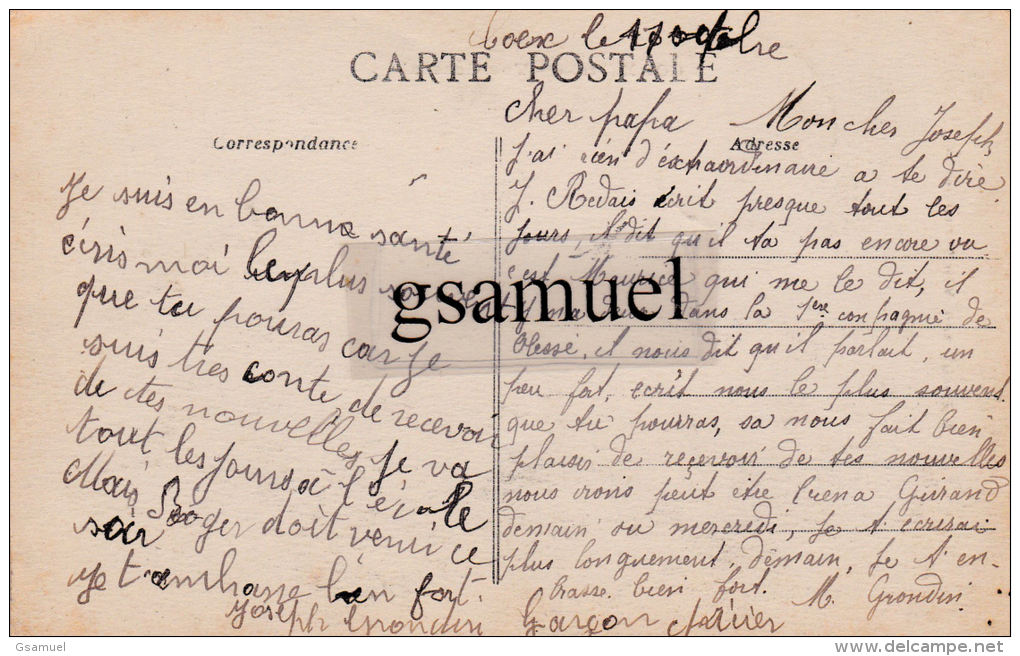 Coex le 17 octobre
CARTE POSTALE
Correspondance
Adresse
Je suis en bonne santé
écris moi le plus souvent
que tu pouras car je
suis tres conte de recevoir
de tes nouvelles je va
tout les jours à l'école
Mais Roger doit venir ce
soir
je t'ambrasse bien fort.
Joseph Grondin Garçon
Cher papa Mon cher Joseph,
J'ai rien d'éxtraordinaire a te dire
J. Redais écrit presque tout les
jours, il dit qu'il ta pas encore vu
c'est Maurice qui me le dit, il
dans la 1ère compagnie de
blessé, il nous dit qu'il parlait, un
peu fort, ecrit nous le plus souvent
que tu pourras, sa nous fait bien
plaisir de reçevoir de tes nouvelles
nous irons peut etre Guirand
demain ou mercredi, je t'ecrirai
plus longuement, demain, je t'en-
brasse bien fort. M. Grondin
gsamuel
Gsamuel
delcampe.net